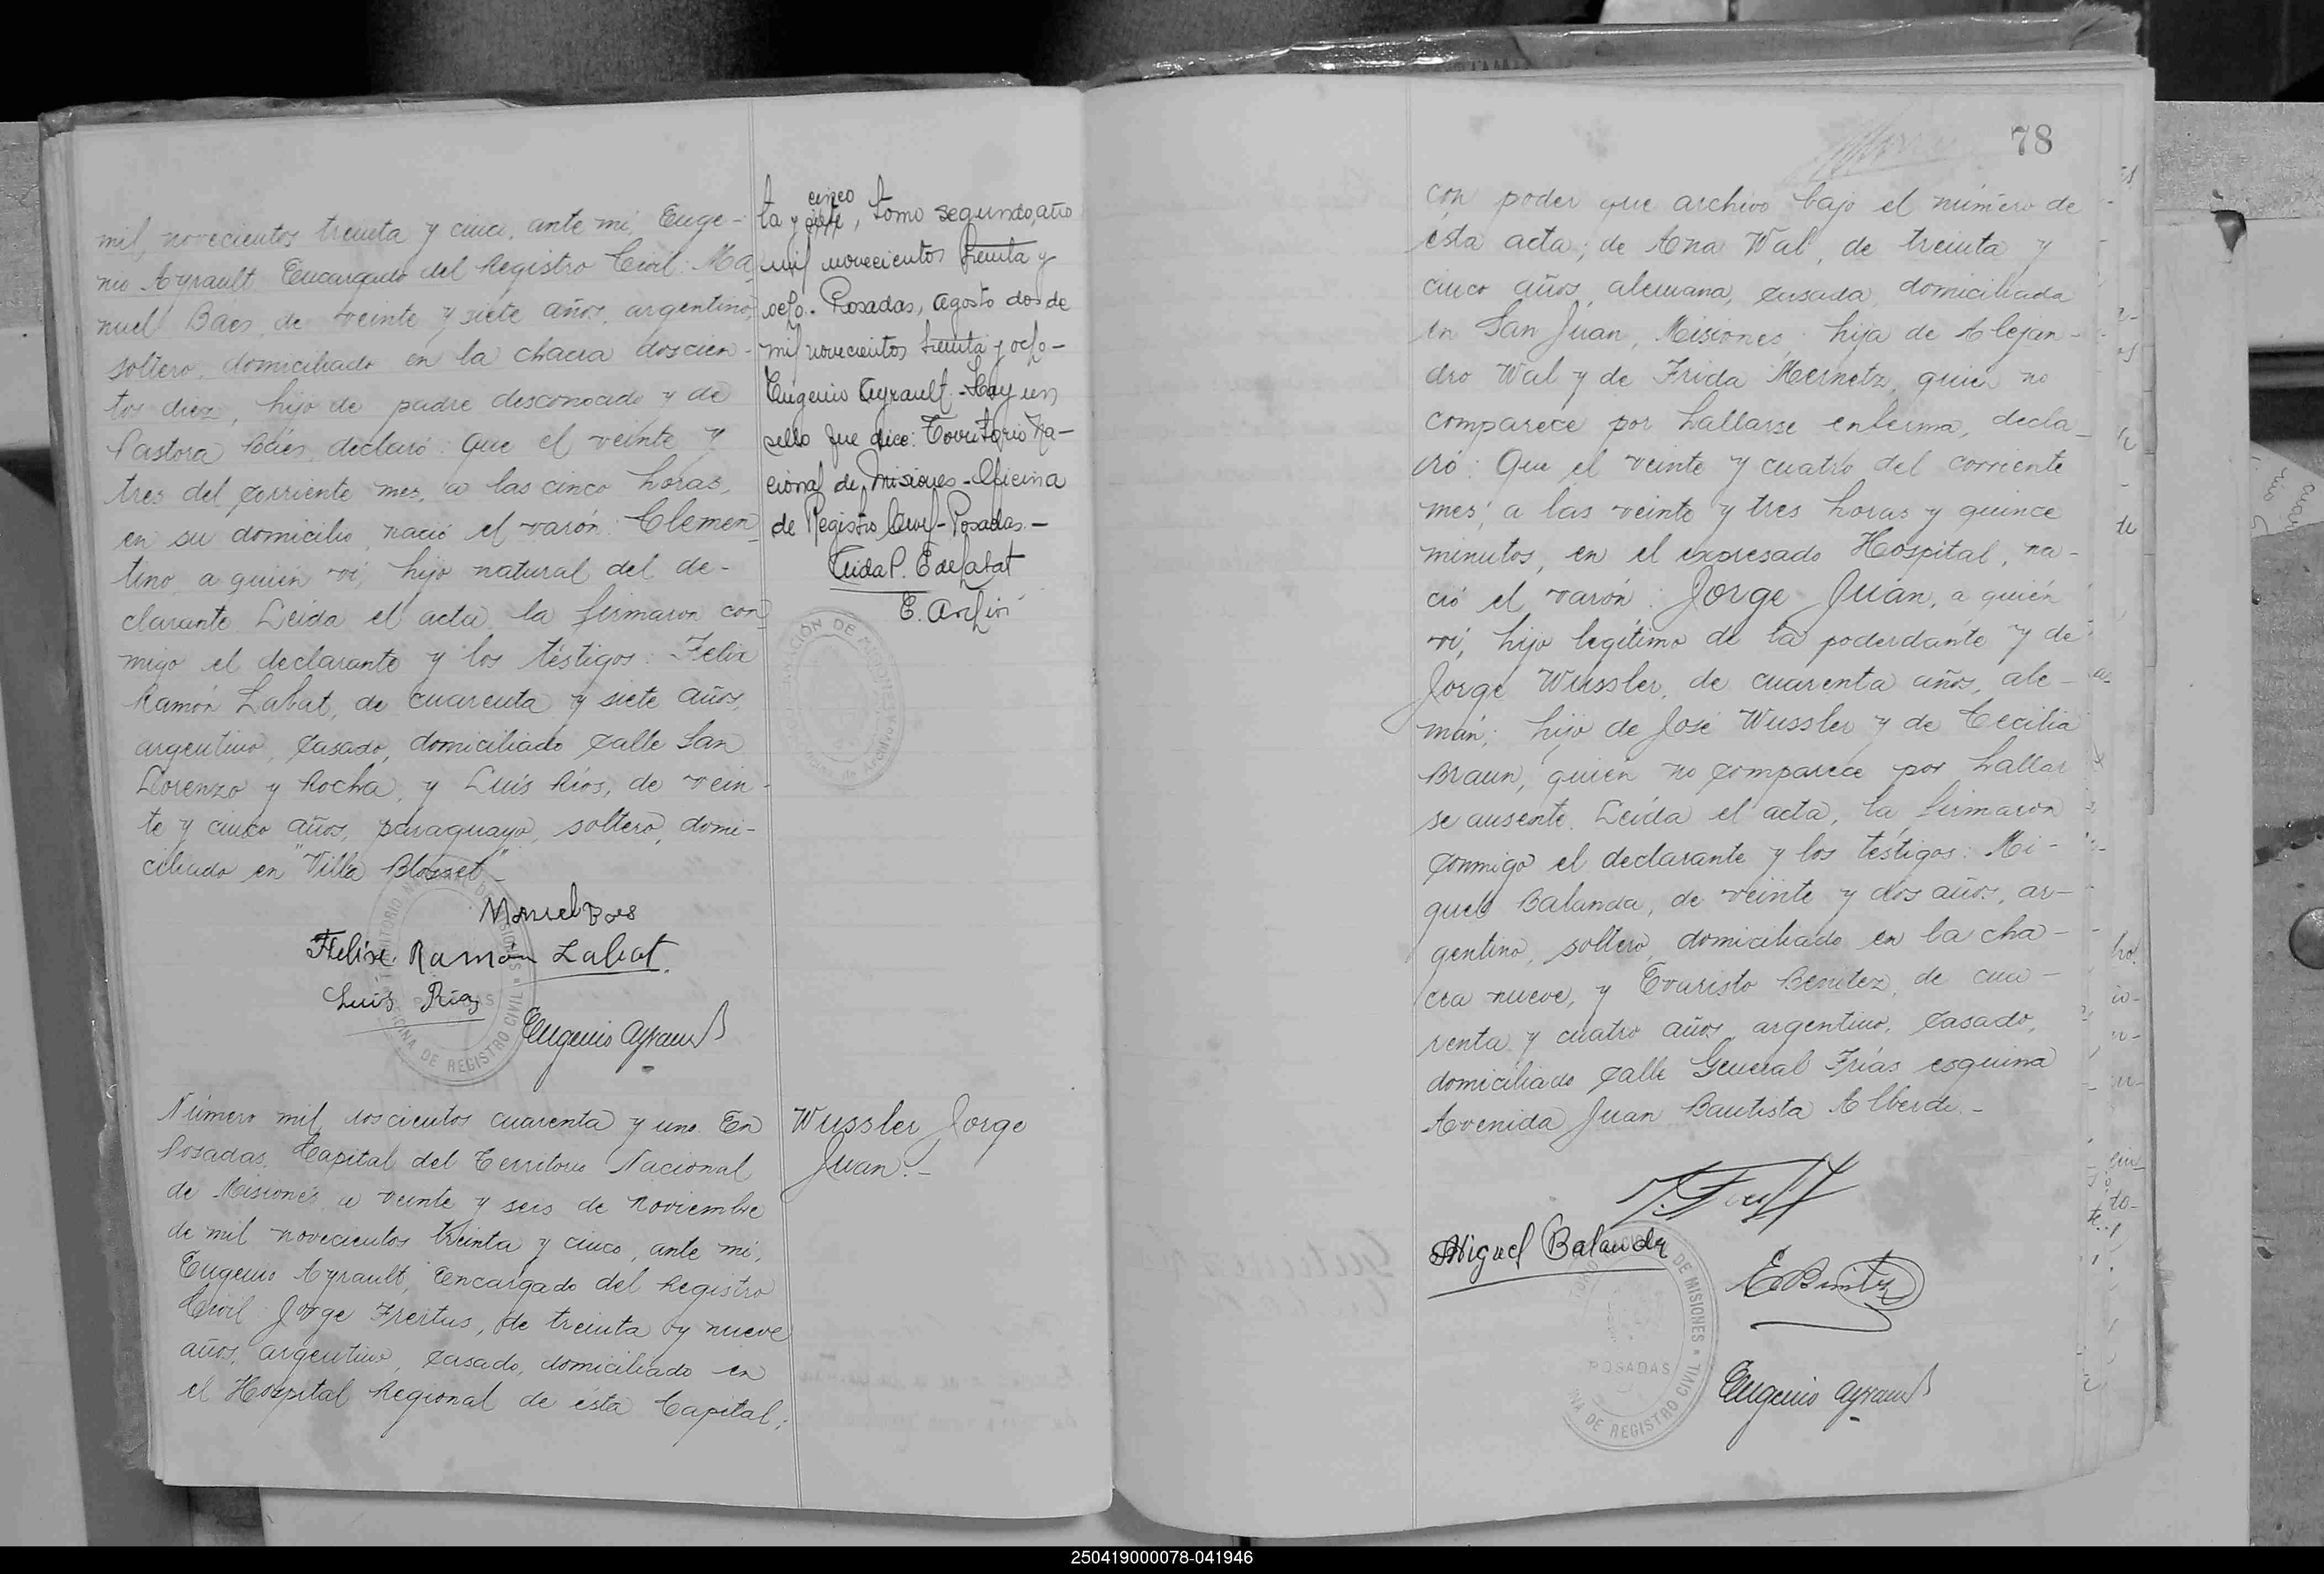 mil, novecientos treinta y cinco, ante mi, Euge-
nio Ayrault Encargado del Registro Civil: Ma-
nuel Baes, de veinte y siete años, argentino,
soltero, domiciliado en la chacra doscien-
tos diez, hijo de padre desconocido y de
Pastora Báes, declaró: Que el veinte y
tres del corriente mes, a las cinco horas,
en su domicilio, nació el varón: Clemen-
tino, a quién vi, hijo natural del de-
clarante. Leída el acta, la firmaron con-
migo el declarante y los téstigos: Felix
Ramón Labat, de cuarenta y siete años,
argentino, casado, domiciliado calle San
Lorenzo y Rocha, y Luís Ríos, de vein-
te y cinco años, paraguayo, soltero, domi-
ciliado en "Villa Blosset"-
Manuel Baes
Felix Ramón Labat
Luis Rios
Eugenio Ayrault
OFICINA DE REGISTRO CIVIL
Número mil doscientos cuarenta y uno. En
Posadas, Capital del Territorio Nacional
de Misiones, a veinte y seis de Noviembre
de mil novecientos treinta y cinco, ante mi,
Eugenio Ayrault, Encargado del Registro
Civil: Jorge Freitus, de treinta y nueve
años, argentino, casado, domiciliado en
el Hospital Regional de ésta Capital;
cinco
ta y siete, tomo segundo, año
mil novecientos treinta y
ocho. Posadas, Agosto dos de
mil novecientos treinta y ocho-
Eugenio Ayrault.-Hay un
sello que dice: Territorio Na-
cional de Misiones-Oficina
de Registro Civil-Posadas.-
Wussler Jorge
Juan.-
78
con poder que archivo bajo el número de
ésta acta; de Ana Wal, de treinta y
cinco años, alemana, casada, domiciliada
en San Juan, Misiones; hija de Alejan-
dro Wal y de Frida Mernetz, quién no
comparece por hallarse enferma, decla-
ró: Que el veinte y cuatro del corriente
mes, a las veinte y tres horas y quince
minutos, en el expresado Hospital, na-
ció el varón: Jorge Juan, a quién
ví, hijo legítimo de la poderdante y de
Jorge Wussler, de cuarenta años, ale-
mán; hijo de José Wussler y de Cecilia
Braun, quién no comparece por hallar
se ausente. Leída el acta, la firmaron
conmigo el declarante y los téstigos: Mi-
guel Balanda, de veinte y dos años, ar-
gentino, soltero, domiciliado en la cha-
cra nueve, y Evaristo Benítez, de cua-
renta y cuatro años, argentino, casado,
domiciliado calle General Frías esquina
Avenida Juan Bautista Alberdi.-
Miguel Balanda
E Benitez
Eugenio Ayrault
DE MISIONES
POSADAS
OFICINA DE REGISTRO CIVIL
250419000078-041946